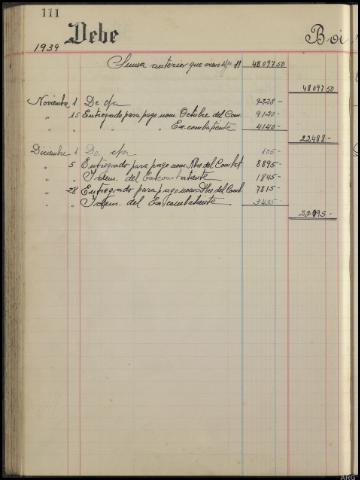 111
Debe
Boi
1939
Suma anterior que viene del 48097.50
48097.50
Noviembre 1 De ofe 9228-
" 15 Entregado para pago nom Octubre del Com. 9120-
" " " " Excombatiente 4140-
22488-
Diciembre 1 De ofe
" 5 Entregado para pago nom Nbre del Combat 8895-
" " Idem. del Excombatiente 1845-
" 28 Entregado para pago nom Dbre del Comb 7815-
" " Idem del Excombatiente 3435-
22095-
ARG